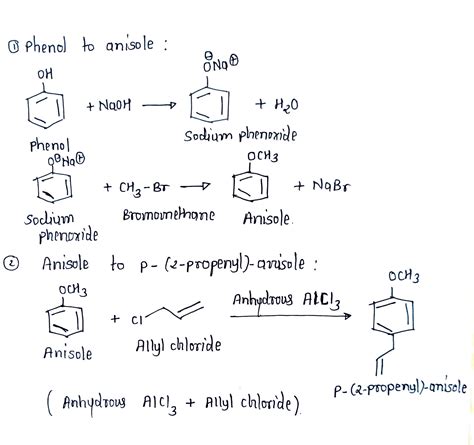 ① Phenol to anisole :
OH
⊖ONa⊕
+ NaOH ⟶ + H₂O
Phenol
Sodium phenoxide
O⊖Na⊕
OCH₃
+ CH₃–Br ⟶ + NaBr
Sodium phenoxide
Bromomethane
Anisole.
② Anisole to p-(2-propenyl)-anisole :
OCH₃
+ Cl
Anhydrous AlCl₃
OCH₃
Anisole
Allyl chloride
p-(2-propenyl)-anisole
( Anhydrous AlCl₃ + Allyl chloride).